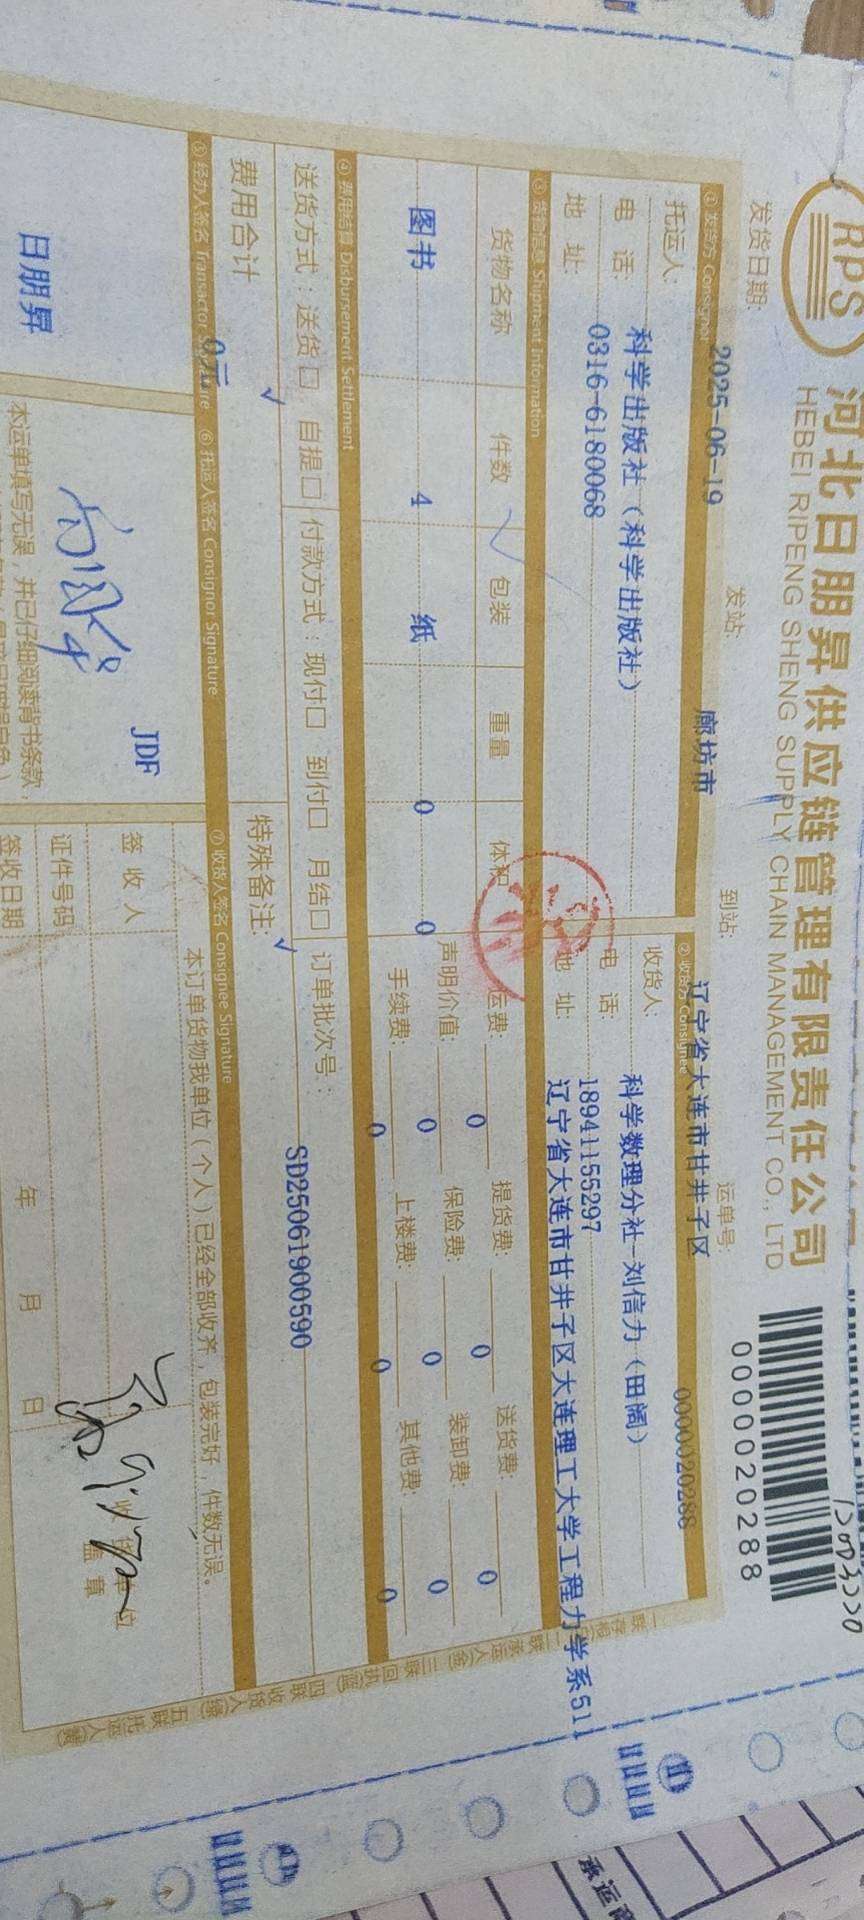 RPS
河北日朋昇供应链管理有限责任公司
HEBEI RIPENG SHENG SUPPLY CHAIN MANAGEMENT CO., LTD
0000020288
发货日期: 2025-06-19 发站: 廊坊市 到站: 辽宁省大连市甘井子区 运单号: 0000020288
① 发货方 Consignor
托运人: 科学出版社（科学出版社）
电 话: 0316-6180068
地 址:
② 收货方 Consignee
收货人: 科学数理分社-刘信力（田阔）
电 话: 18941155297
地 址: 辽宁省大连市甘井子区大连理工大学工程力学系511
③ 货物信息 Shipment Information
货物名称 件数 包装 重量 体积
图书 4 纸 0 0
运费: 0 提货费: 0 送货费: 0
声明价值: 0 保险费: 0 装卸费: 0
手续费: 0 上楼费: 0 其他费: 0
④ 费用结算 Disbursement Settlement
送货方式：送货□ 自提□ 付款方式：现付□ 到付□ 月结□ 订单批次号： SD25061900590
费用合计 0元 特殊备注:
⑤ 经办人签名 Transactor
⑥ 托运人签名 Consignor Signature
⑦ 收货人签名 Consignee Signature
日朋昇
JDF
本运单填写无误，并已仔细阅读背书条款，
本订单货物我单位（个人）已经全部收齐，包装完好，件数无误。
签 收 人
证件号码
签收日期 年 月 日
盖 章
承运